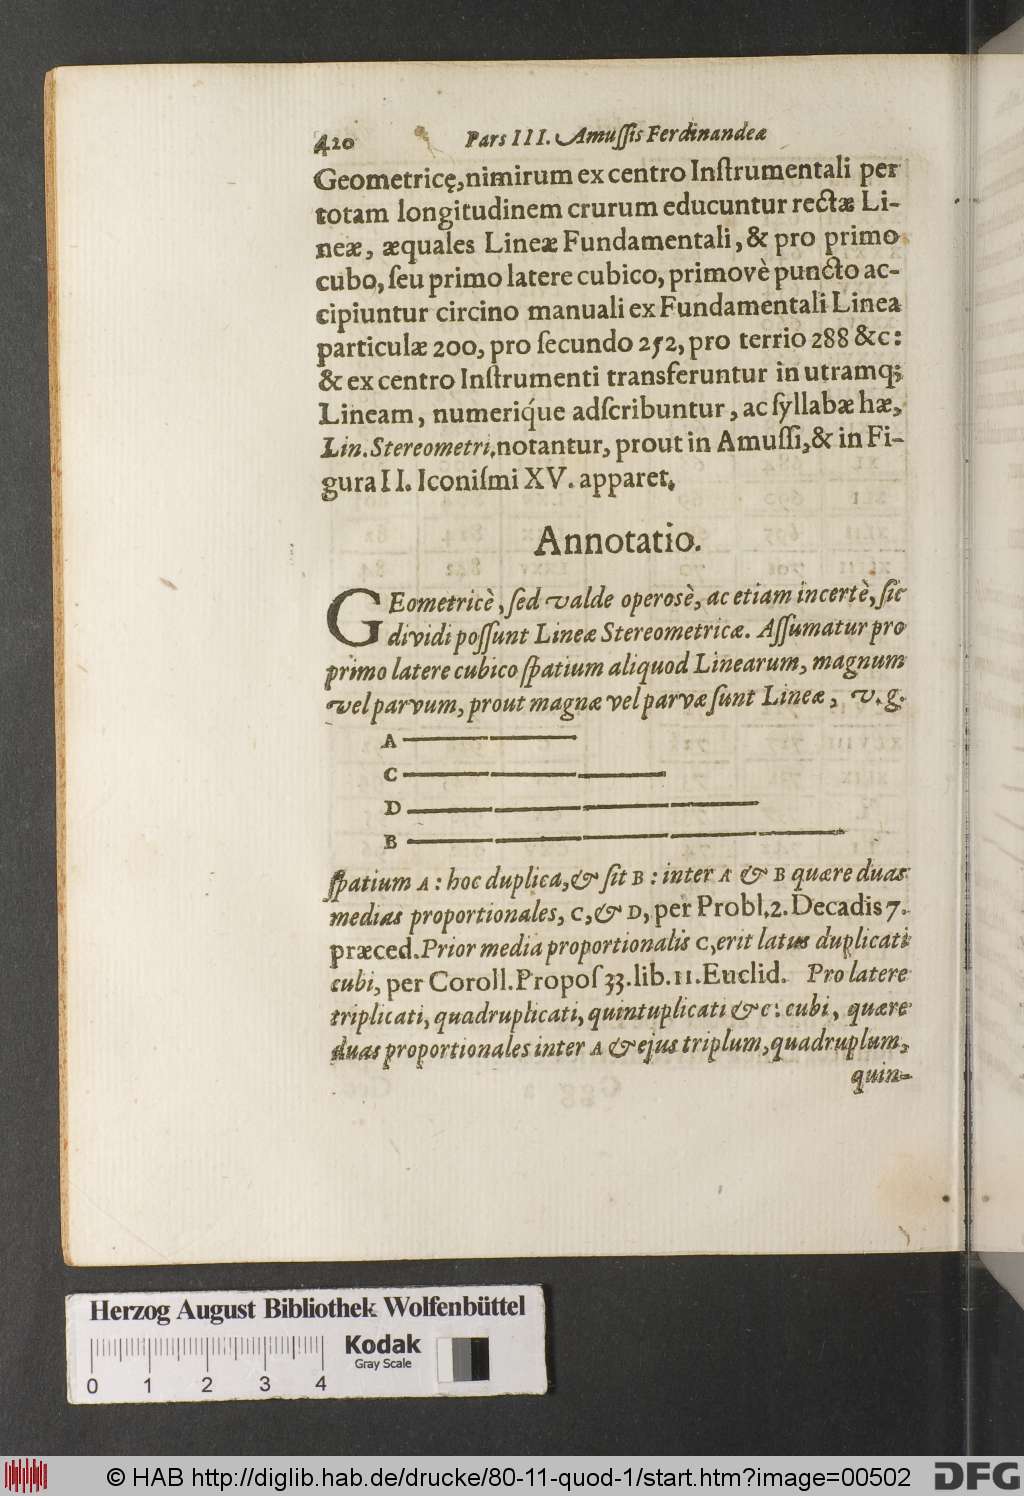 420 Pars III. Amuſſis Ferdinandeæ
Geometricę, nimirum ex centro Inſtrumentali per
totam longitudinem crurum educuntur rectæ Li-
neæ, æquales Lineæ Fundamentali, & pro primo
cubo, ſeu primo latere cubico, primovè puncto ac-
cipiuntur circino manuali ex Fundamentali Linea
particulæ 200, pro ſecundo 252, pro terrio 288 &c:
& ex centro Inſtrumenti transferuntur in utramq;
Lineam, numeriq́ue adſcribuntur, ac ſyllabæ hæ,
Lin. Stereometri, notantur, prout in Amuſſi, & in Fi-
gura II. Iconiſmi XV. apparet.
Annotatio.
GEometricè, ſed valde operosè, ac etiam incertè, ſic
dividi poſſunt Lineæ Stereometricæ. Aſſumatur pro
primo latere cubico ſpatium aliquod Linearum, magnum
vel parvum, prout magnæ vel parvæ ſunt Lineæ, v. g.
A
C
D
B
ſpatium A: hoc duplica, & ſit B: inter A & B quære duas
medias proportionales, C, & D, per Probl. 2. Decadis 7.
præced. Prior media proportionalis C, erit latus duplicati
cubi, per Coroll. Propoſ 33. lib. 11. Euclid. Pro latere
triplicati, quadruplicati, quintuplicati &c: cubi, quære
duas proportionales inter A & ejus triplum, quadruplum,
quin-
Herzog August Bibliothek Wolfenbüttel
Kodak
Gray Scale
0 1 2 3 4
© HAB http://diglib.hab.de/drucke/80-11-quod-1/start.htm?image=00502 DFG